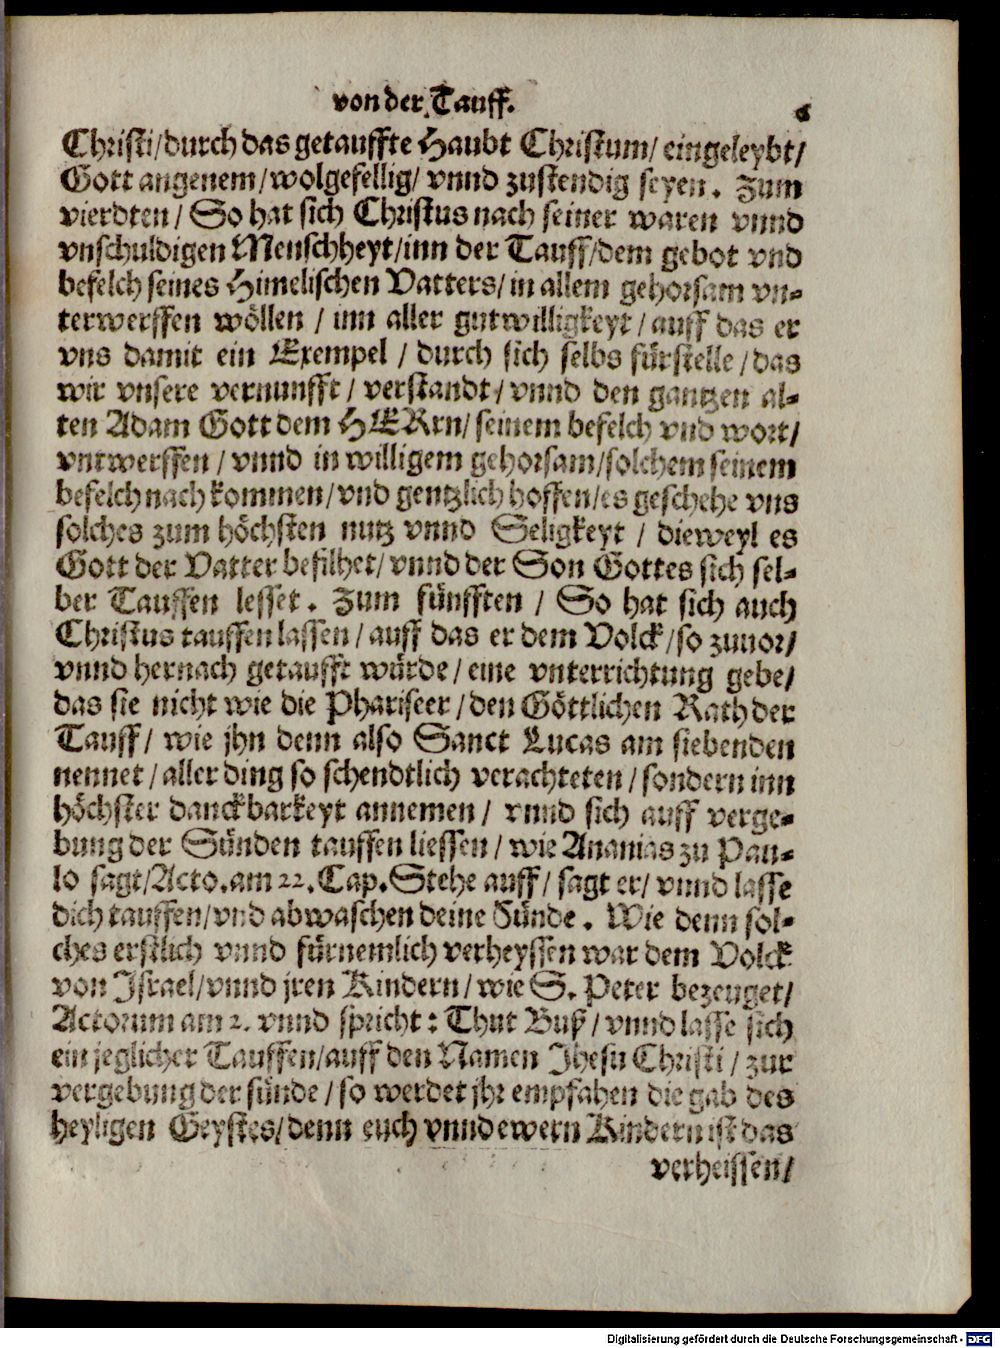 von der Tauff. 6
Christi/durch das getauffte Haubt Christum/ eingeleybt/
Gott angenem/wolgefellig/ vnnd zustendig seyen. Zum
vierdten/ So hat sich Christus nach seiner waren vnnd
vnschuldigen Menschheyt/inn der Tauff/dem gebot vnd
befelch seines Himelischen Vatters/in allem gehorsam vn-
terwerffen wöllen / inn aller gutwilligkeyt/auff das er
vns damit ein Exempel / durch sich selbs fürstelle/das
wir vnsere vernunfft/ verstandt/vnnd den gantzen al-
ten Adam Gott dem HERrn/seinem befelch vnd wort/
vntwerffen / vnnd in willigem gehorsam/solchem seinem
befelch nach kommen/vnd gentzlich hoffen/es geschehe vns
solches zum höchsten nutz vnnd Seligkeyt / dieweyl es
Gott der Vatter befilhet/vnnd der Son Gottes sich sel-
ber Tauffen lesset. Zum fünfften / So hat sich auch
Christus tauffen lassen/auff das er dem Volck/so zuuor/
vnnd hernach getaufft würde/eine vnterrichtung gebe/
das sie nicht wie die Phariseer/den Göttlichen Rath der
Tauff/ wie jhn denn also Sanct Lucas am siebenden
nennet/aller ding so schendtlich verachteten/sondern inn
höchster danckbarkeyt annemen/ vnnd sich auff verge-
bung der Sünden tauffen liessen/wie Ananias zu Pau-
lo sagt/Acto.am 22.Cap.Stehe auff/ sagt er/ vnnd lasse
dich tauffen/vnd abwaschen deine Sünde. Wie denn sol-
ches erstlich vnnd fürnemlich verheyssen war dem Volck
von Israel/vnnd jren Kindern/wie S. Peter bezeuget/
Actorum am 2. vnnd spricht: Thut Buß/vnnd lasse sich
ein jeglicher Tauffen/auff den Namen Jhesu Christi / zur
vergebung der sünde/so werdet jhr empfahen die gab des
heyligen Geystes/denn euch vnnd ewern Kindern ist das
verheissen/
Digitalisierung gefördert durch die Deutsche Forschungsgemeinschaft - DFG